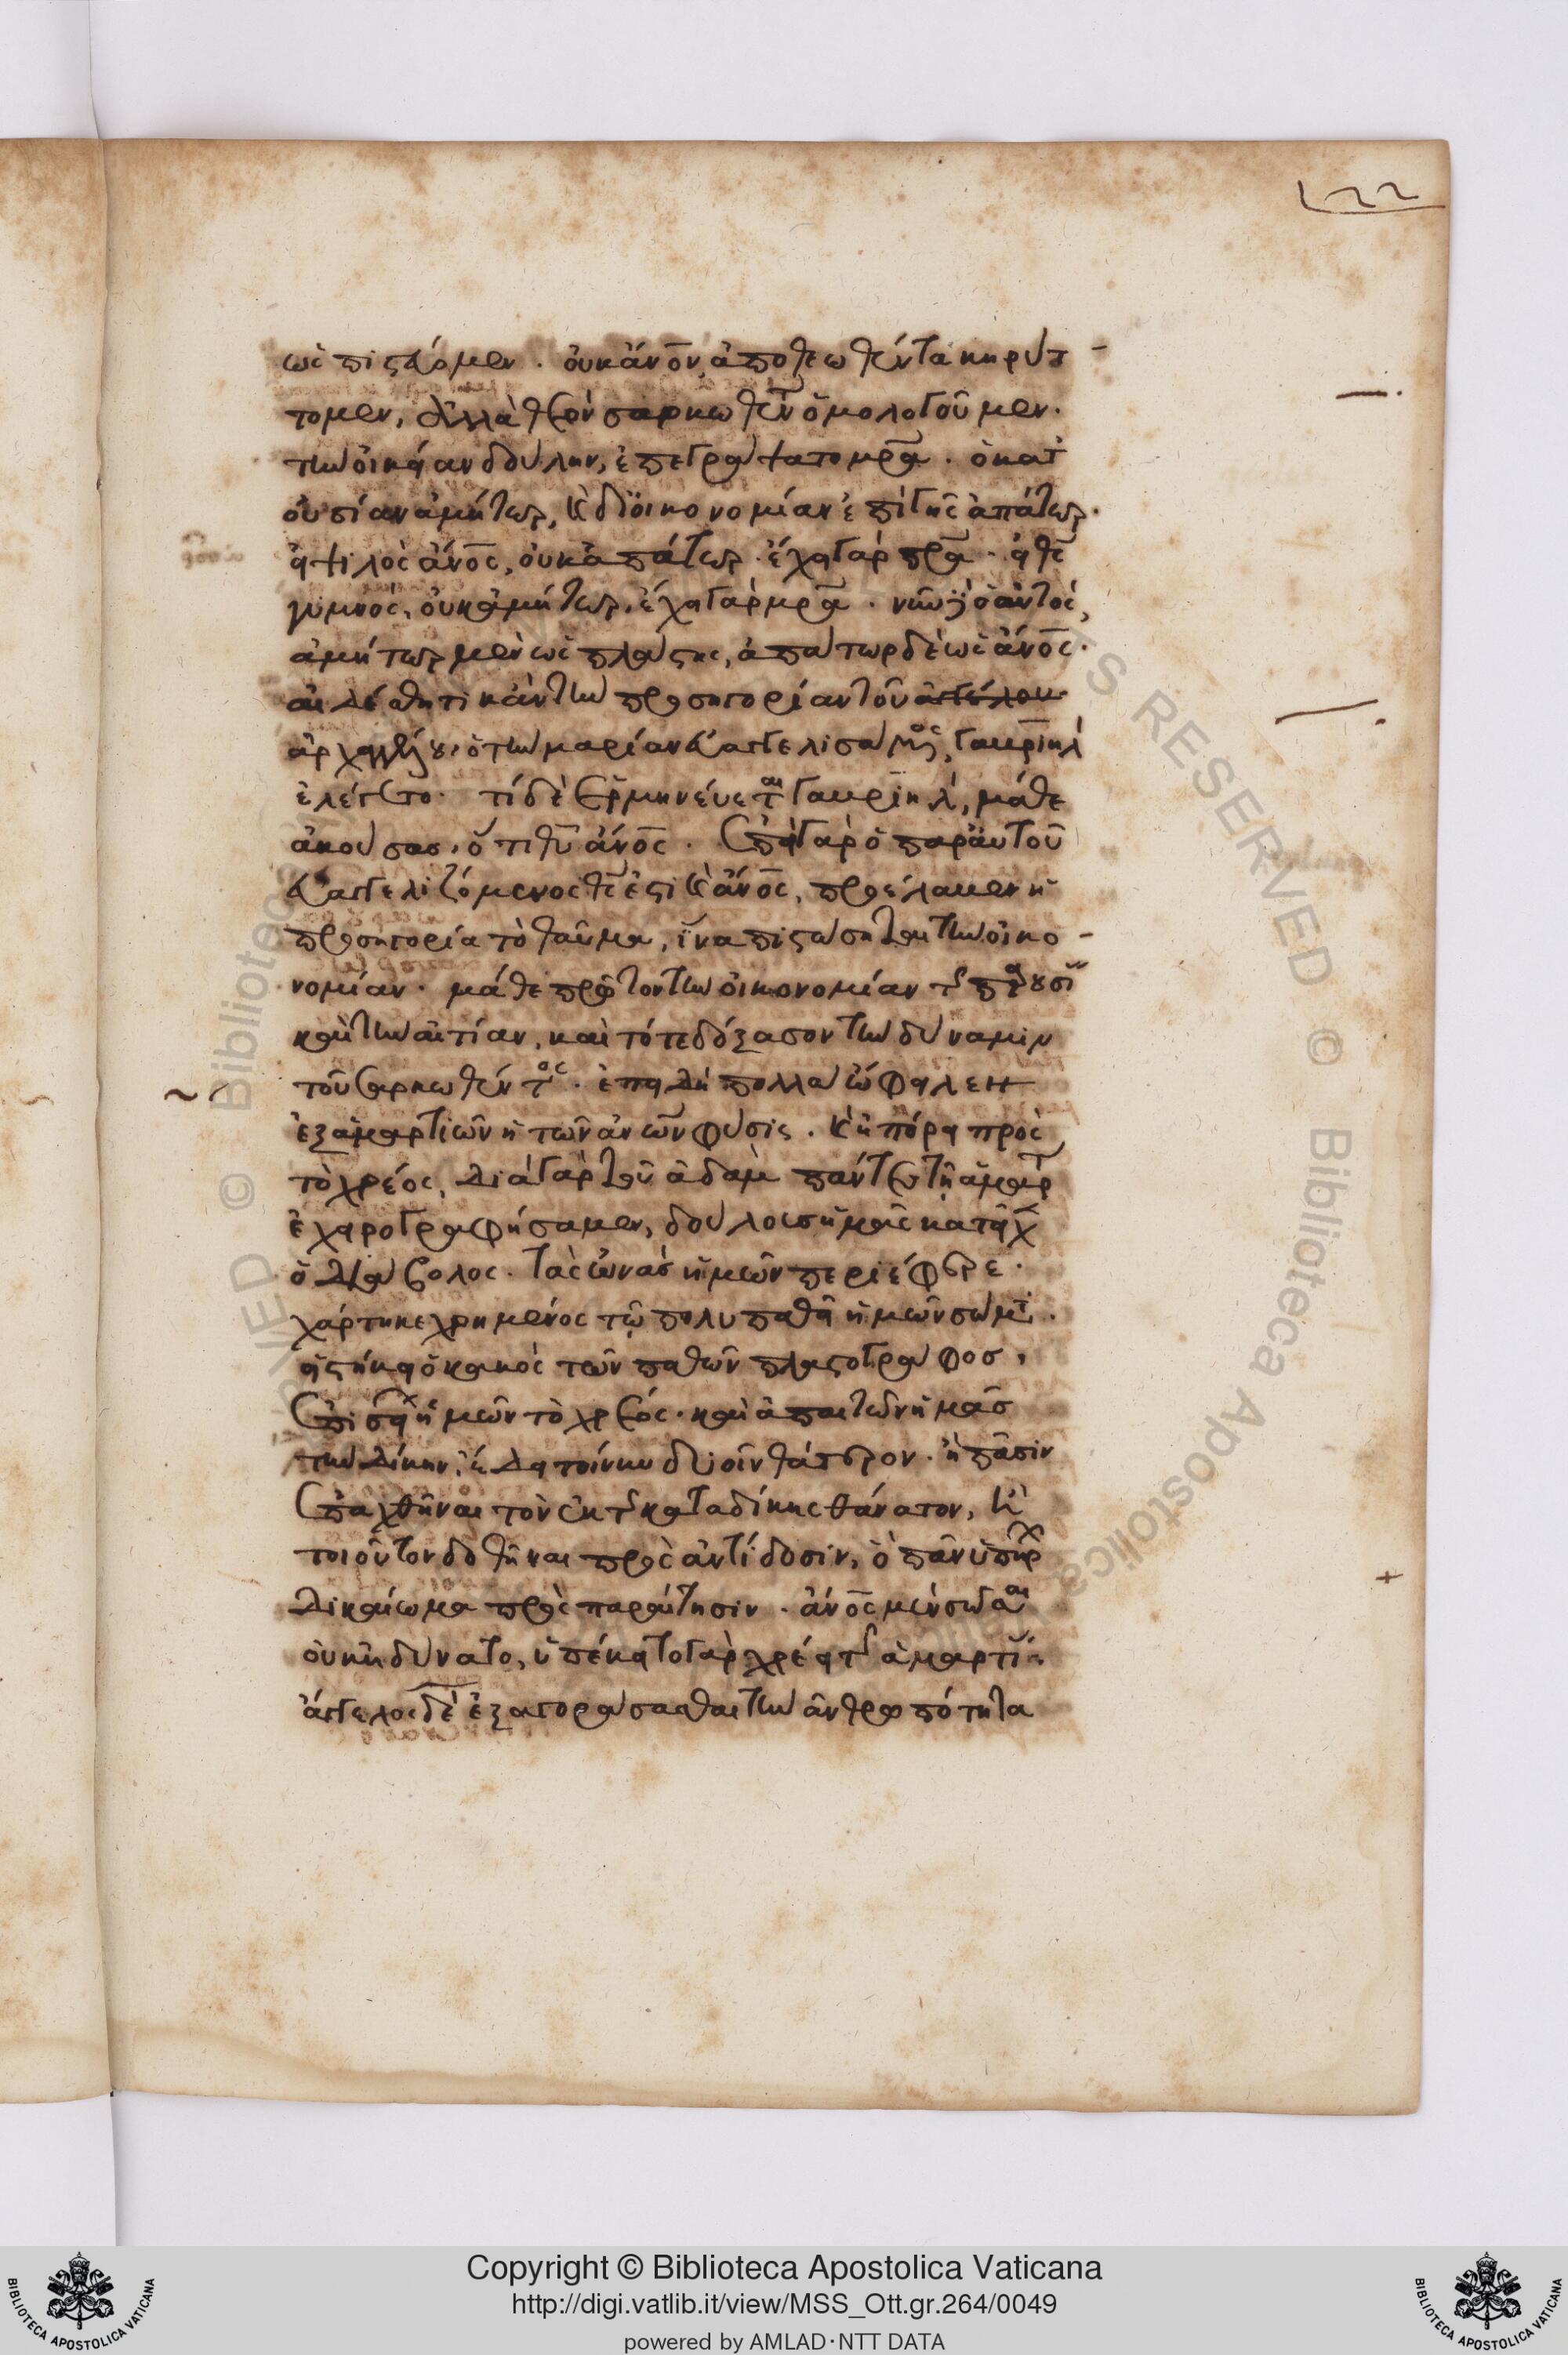 122
ὡς πιστεύομεν. οὐκ ἄνον ἀποθεωθέντα κηρύτ-
τομεν, ἀλλὰ θεὸν σαρκωθέντ ὁμολογοῦμεν.
τὴν οἰκείαν δούλην, ἐπεγράψατο μρα. ὁ κατ
οὐσίαν ἀμήτωρ, κ δι οἰκονομίαν ἐπὶ γῆς ἀπάτωρ.
εἰ ψιλὸς ἄνος, οὐκ ἀπάτωρ. ἔχει γὰρ πρα. εἰ θς
γυμνός, οὐκ ἀμήτωρ. ἔχει γὰρ μρα. νῦν δὲ ὁ αὐτός,
ἀμήτωρ μὲν ὡς πλάστης, ἀπάτωρ δὲ ὡς ἄνος.
αἰδέσθητι κἂν τὴν προσηγορίαν τοῦ ἀγγέλου
ἀρχαγγέλου. ὁ τὴν μαρίαν εὐαγγελισάμενος, γαυριὴλ
ἐλέγετο. τί δὲ ἑρμηνεύεται γαυριὴλ, μάθε
ἀκούσας. ὅτι θς ἄνος. ἐπεὶ γὰρ ὁ παρ αὐτοῦ
εὐαγγελιζόμενος θς ἐστὶ κ ἄνος, προέλαμεν ἡ
προσηγορία τὸ θαῦμα, ἵνα πιστώσηται τὴν οἰκο-
νομίαν. μάθε πρῶτον τὴν οἰκονομίαν τῆς παρουσί
καὶ τὴν αἰτίαν, καὶ τότε δόξασον τὴν δύναμιν
τοῦ σαρκωθέντος. ἐπειδὴ πολλὰ ὤφειλεν
ἐξ ἁμαρτιῶν ἡ τῶν ἀνων φύσις. κ ἠπόρει πρὸς
τὸ χρέος, διὰ γὰρ τοῦ ἀδὰμ πάντες τῇ ἁμαρτ
ἐχειρογραφήσαμεν, δούλους ἡμᾶς κατεῖχ
ὁ διάβολος. τὰς ὠνὰς ἡμῶν περιέφερε.
χάρτη κεχρημένος τῷ πολυπαθεῖ ἡμῶν σώματι.
εἱστήκει ὁ κακὸς τῶν παθῶν πλαστογράφος,
ἐπισείων ἡμῶν τὸ χρέος. καὶ ἀπαιτῶν ἡμᾶς
τὴν δίκην. ἔδει τοίνυν δυοῖν θάτερον. ἢ πᾶσιν
ἐπαχθῆναι τὸν ἐκ τῆς καταδίκης θάνατον, κ
τοιοῦτον δοθῆναι πρὸς ἀντίδοσιν, ὃ πᾶν ὑπῆρχ
δικαίωμα πρὸς παραίτησιν. ἄνος μὲν σῶσαι
οὐκ ἠδύνατο, ὑπέκειτο γὰρ χρέει τῆς ἁμαρτί.
ἄγγελος δὲ ἐξαγοράσασθαι τὴν ἀνθρωπότητα
Copyright © Biblioteca Apostolica Vaticana
http://digi.vatlib.it/view/MSS_Ott.gr.264/0049
powered by AMLAD·NTT DATA